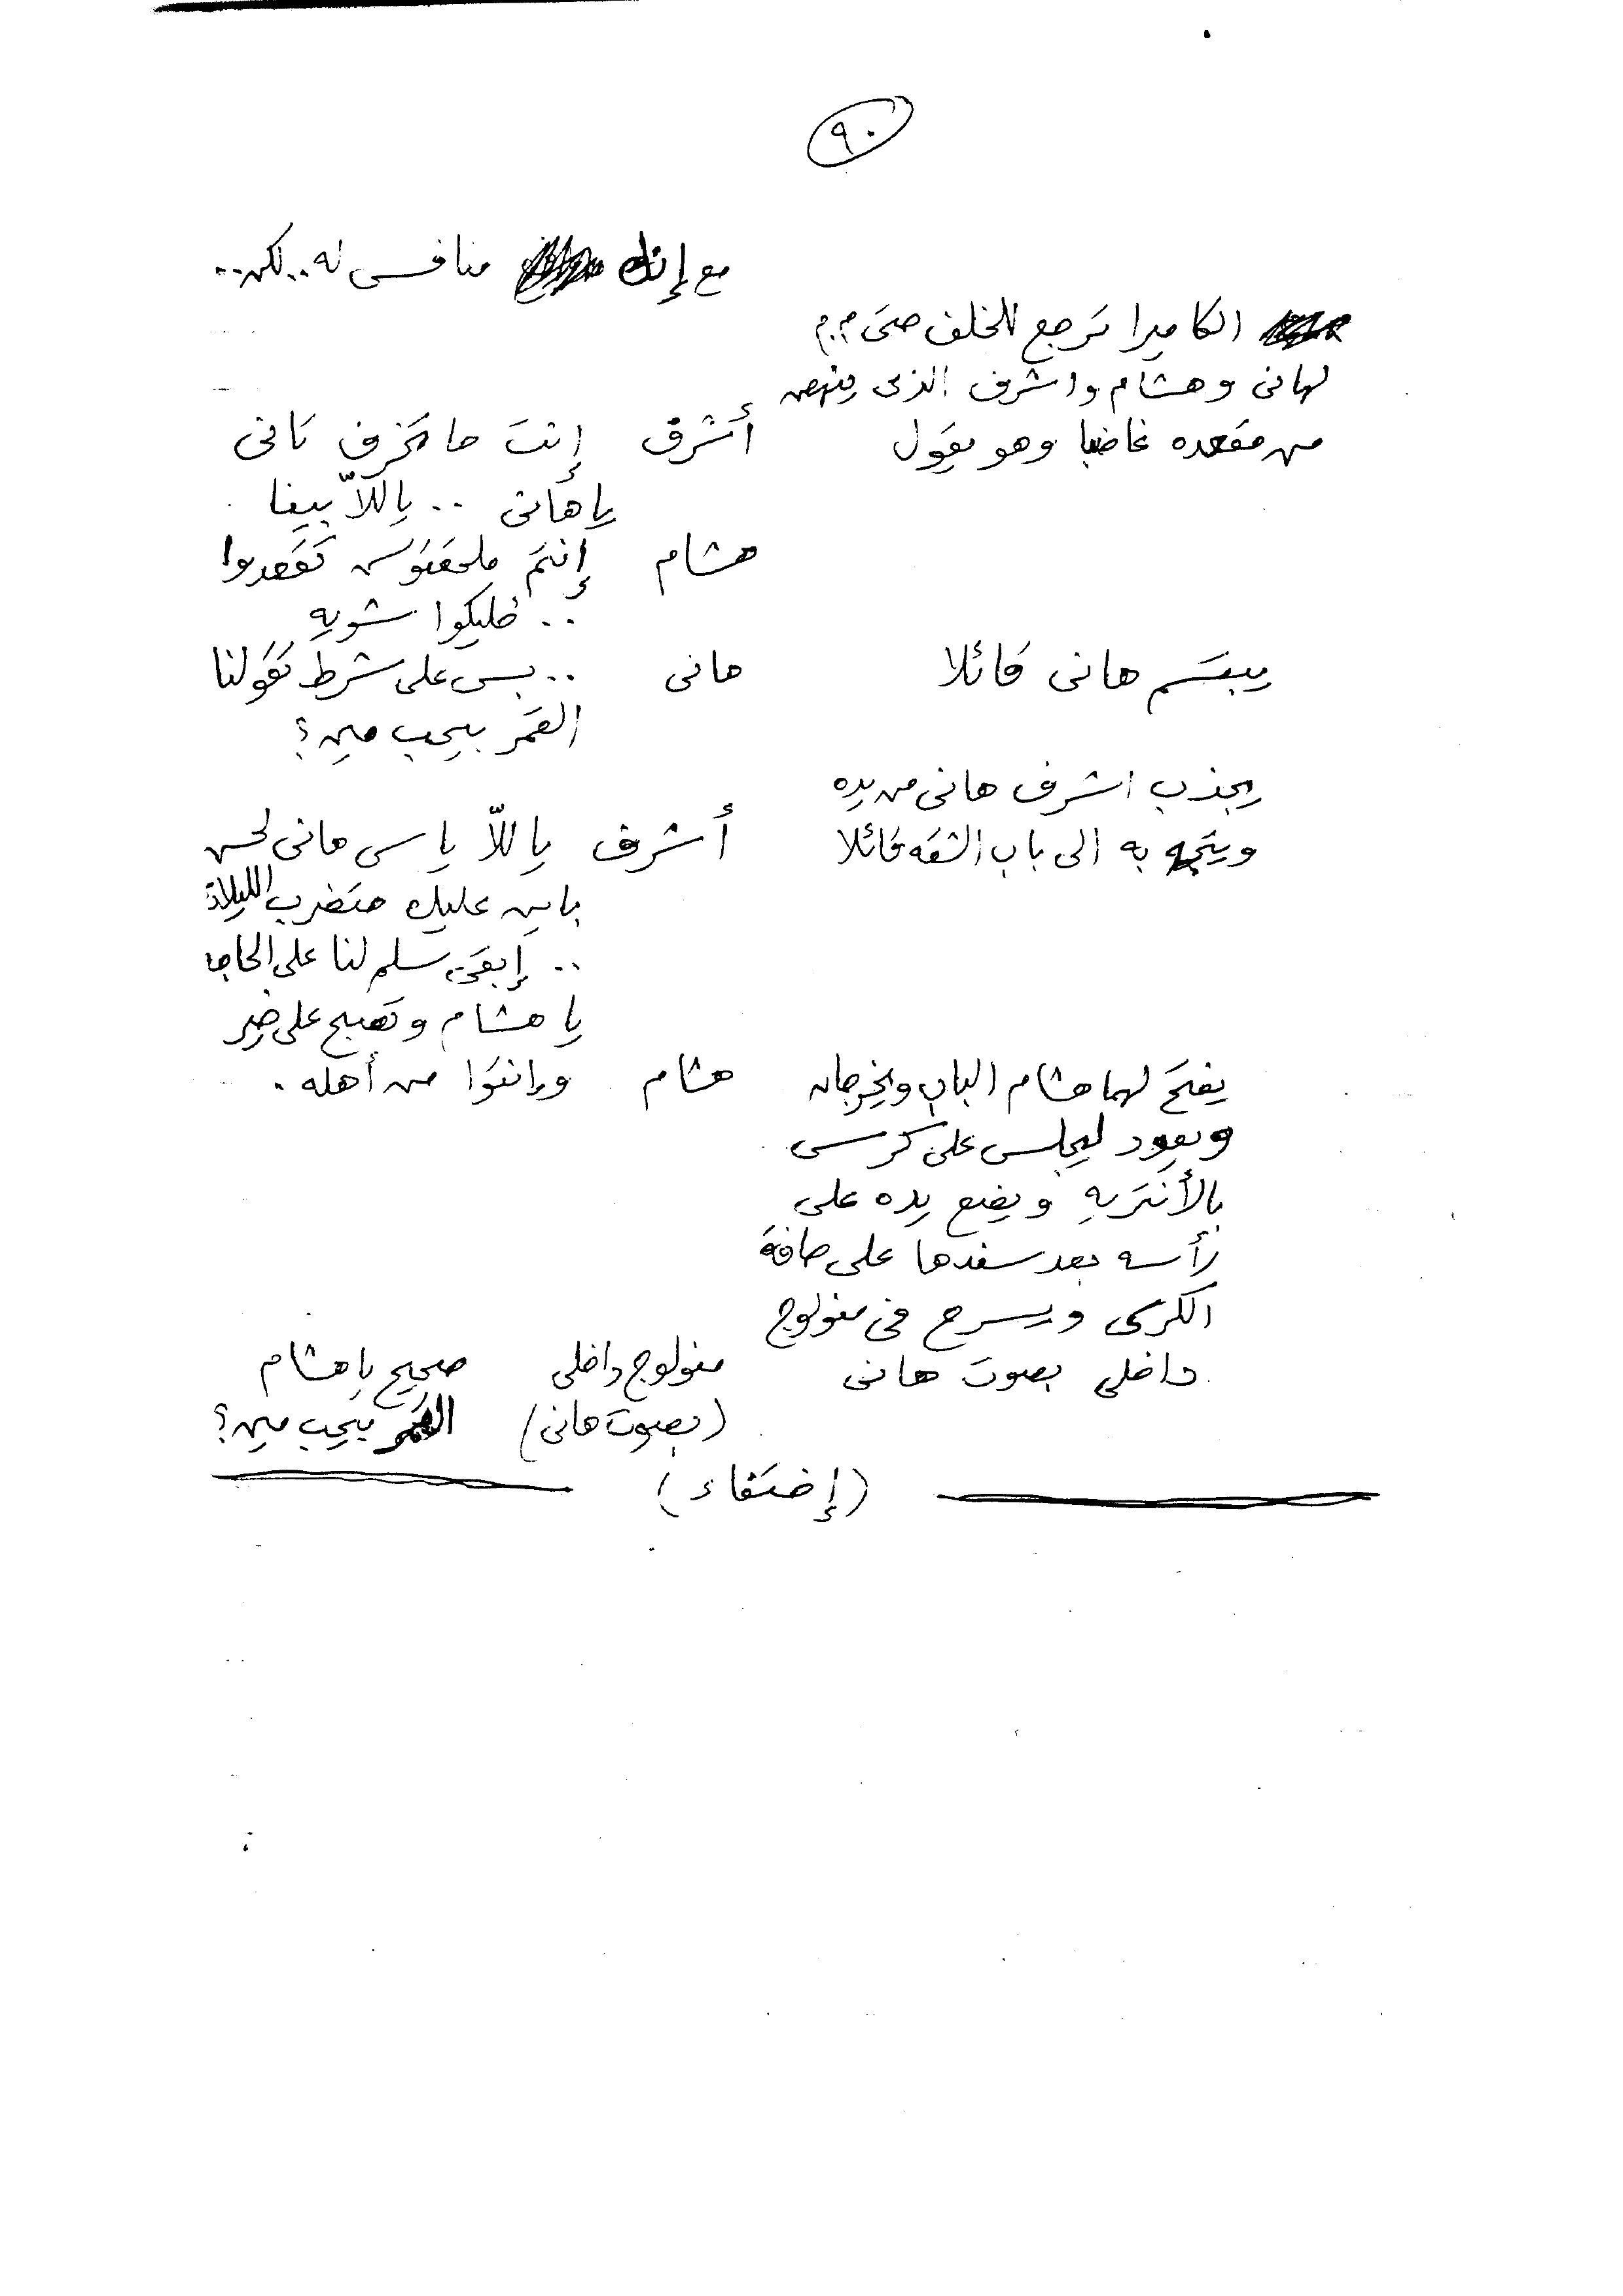 ٩٠
مع إنك منافس له..لكن..
الكاميرا ترجع للخلف حتى م.م
لهانى وهشام واشرف الذى ينهض
من مقعده غاضبا وهو يقول أشرف إنت حاتخرف تانى
ياهانى .. ياللاّ بينا
هشام إنتم ملحقتوش تقعدوا
.. خليكوا شويه
يبتسم هانى قائلا هانى ..بس على شرط تقولنا
القمر بيحب مين؟
يجذب اشرف هانى من يده
ويتجه به الى باب الشقه قائلا أشرف ياللاّ ياسى هانى لحسن
باين عليك حتضرب الليلادى
.. إبقى سلم لنا على الحاجه
يا هشام وتصبح على خير
يفتح لهما هشام الباب ويخرجان هشام وإنتوا من أهله .
ويعود ليجلس على كرسى
بالأنتريه ويضع يده على
رأسه بعد سندها على حافة
الكرسى ويسرح فى منولوج
داخلى بصوت هانى منولوج داخلى صحيح ياهشام
(بصوت هانى) القمر بيحب مين؟
(إختفاء)